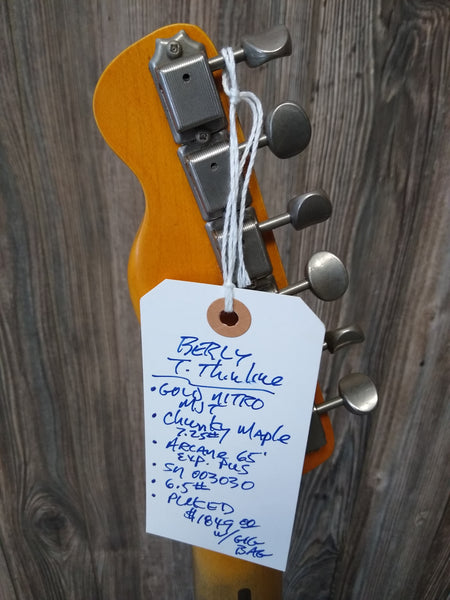 BERLY
T. Thinline
• GOLD NITRO
MJT
• Chunky Maple
7.25#
• ARCANE 65'
EXP. PUS
• SN 003030
• 6.5#
• PLEKED
$1849.00
w/ GIG
BAG